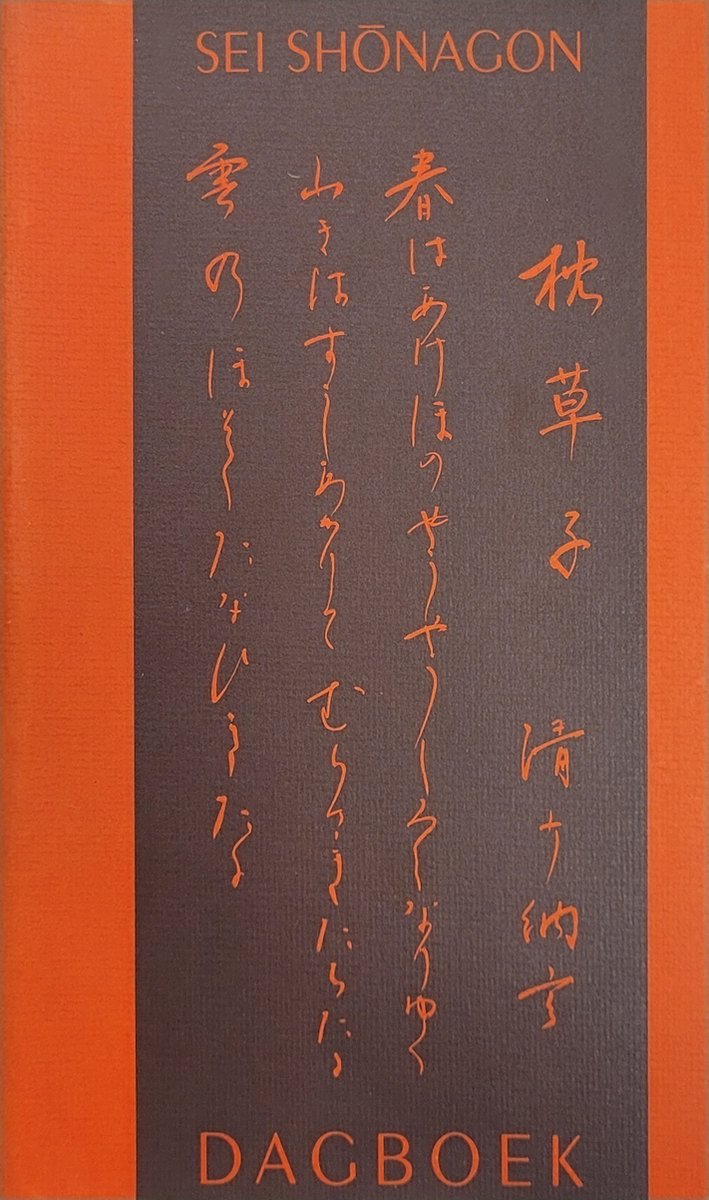 SEI SHŌNAGON
枕草子 清少納言
春はあけほのやうやうしろくなりゆく
山きはすこしあかりてむらさきたちたる
雲のほそくたなひきたる
DAGBOEK